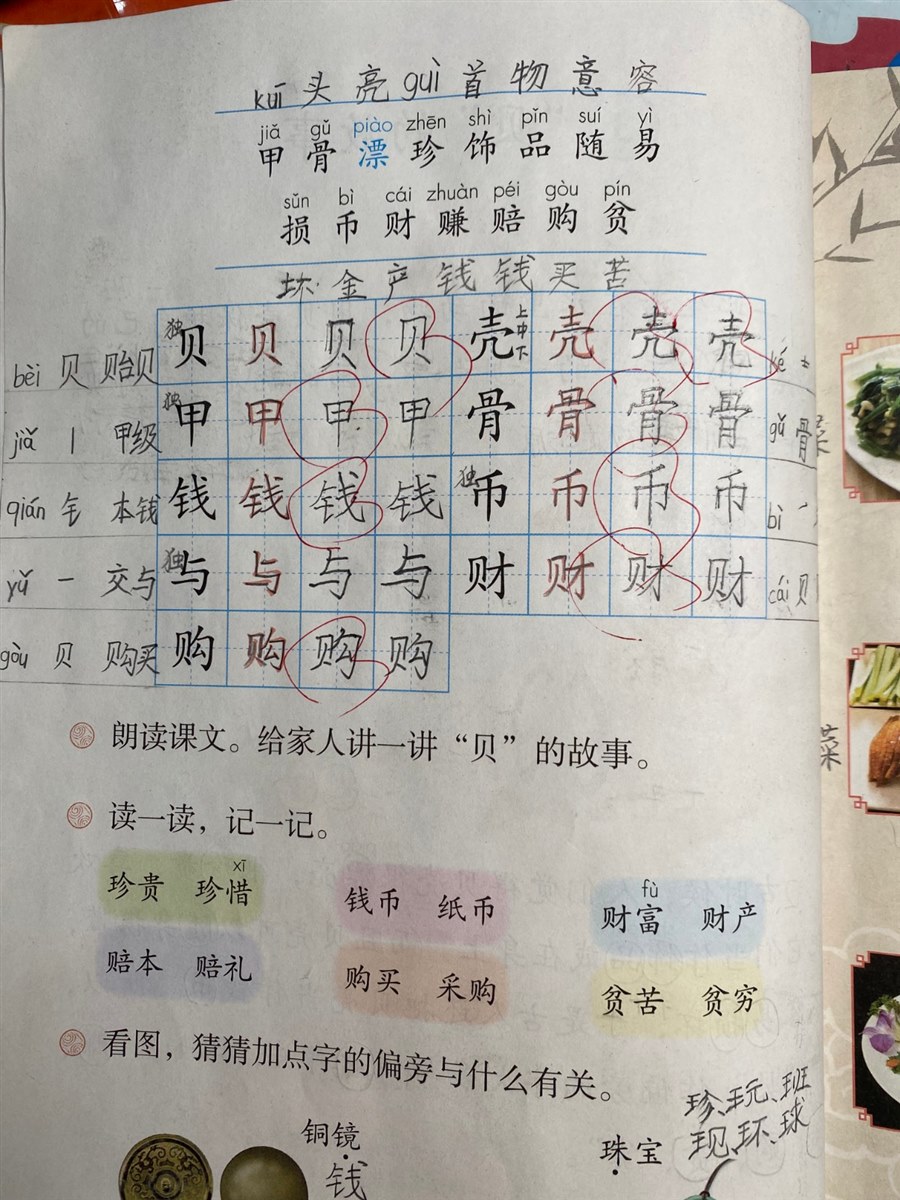 kuī 头 亮 guì 首 物 意 容
jiǎ gǔ piào zhēn shì pǐn suí yì
甲 骨 漂 珍 饰 品 随 易
sǔn bì cái zhuàn péi gòu pín
损 币 财 赚 赔 购 贫
坏 金 产 钱 钱 买 苦
bèi 贝 贻贝 独 贝 贝 贝 贝 壳 上中下 壳 壳 壳 ké
jiǎ 丨 甲级 独 甲 甲 甲 甲 骨 骨 骨 骨 gǔ 骨
qián 钅 本钱 钱 钱 钱 钱 独 币 币 币 币 bì
yǔ 一 交与 独 与 与 与 与 财 财 财 财 cái 贝
gòu 贝 购买 购 购 购 购
朗读课文。给家人讲一讲“贝”的故事。
读一读，记一记。
xī fù
珍贵 珍惜 钱币 纸币 财富 财产
赔本 赔礼 购买 采购 贫苦 贫穷
看图，猜猜加点字的偏旁与什么有关。
珍、玩、班
现、环、球
铜镜 珠宝
钱
菜
菜